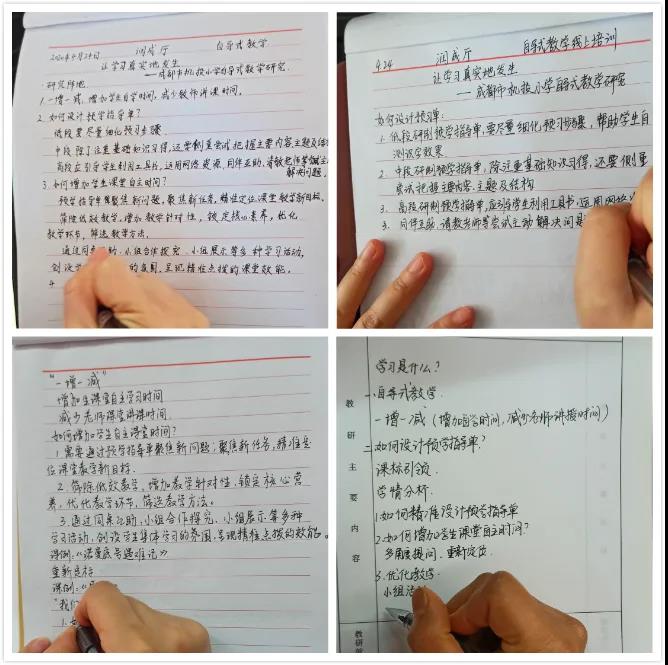 2020年4月24日 润成厅 自导式教学
让学习真实地发生
——成都市机投小学自导式教学研究
研究阵地
1. 一增一减,增加学生自学时间,减少教师讲课时间。
2. 如何设计预学指导单?
低段要尽量细化预习步骤
中段除了注重基础知识习得,还要侧重尝试把握主要内容主题及结
高段应引导学生利用工具书,运用网络资源、同伴互助、请教老师等
解决问题。
3. 如何增加学生课堂自主时间?
预学指导单聚焦新问题,聚焦新任务,精准定位课堂教学新目标。
筛除低效教学,增加教学针对性,锁定核心素养,优化
教学环节,筛选教学方法。
通过同 助、小组合作探究、小组展示等多种学习活动,
创设 的氛围,呈现精准点拨的课堂效能。
4
4.24 润成厅 自导式教学线上培训
让学习真实地发生
——成都市机投小学自导式教学研究
如何设计预习单:
1. 低段研制预学指导单,要尽量细化预习步骤,帮助学生自
测识学效果
2. 中段研制预学指导单,除注重基础知识习得,还要侧重
尝试把握主要内容、主题及结构
3. 高段研制预学指导单,应引导学生利用工具书,运用网络
3. 同伴互助,请教老师等尝试主动解决问题
"一增一减"
增加生课堂自主学习时间
减少老师课堂讲课时间.
如何增加学生自主课堂时间?
1. 需要通过预学指导单聚焦新问题,聚焦新任务,精准定
位课堂教学新目标.
2. 筛除低效教学,增加教学针对性,锁定核心素
养,优化教学环节,筛选教学方法。
3. 通过同桌互助,小组合作探究、小组展示等多种
学习活动,创设学生集体学习的氛围,呈现精准点拨的效能。
课例:《诺曼底号遇难记》
重新定标
课例:《
"我们
1.
学习是什么?
一、自导式教学.
一增一减(增加自学时间,减少老师讲授时间)
二、如何设计预学指导单?
课标引领.
学情分析.
1. 如何精准设计预学指导单
2. 如何增加学生课堂自主时间?
多角度提问、重新定位.
3. 优化教学.
小组
教研主要内容
教研